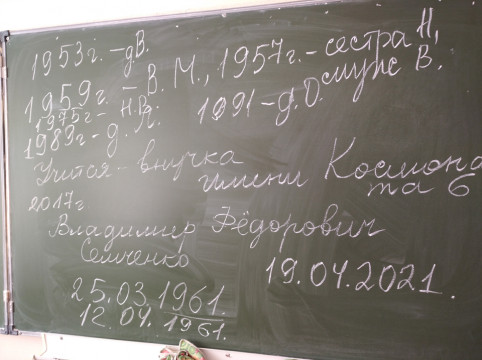 1953г. – дВ.
1959г. – В. М., 1957г. – сестра Н,
1975г – Н.В. 1991 – д.О. муж В.
1989г – д. Л.
Учится – внучка
имени Космонав
та 6
2017г
Владимир Фёдорович
Семченко
25.03.1961.
19.04.2021.
12.04.1961.